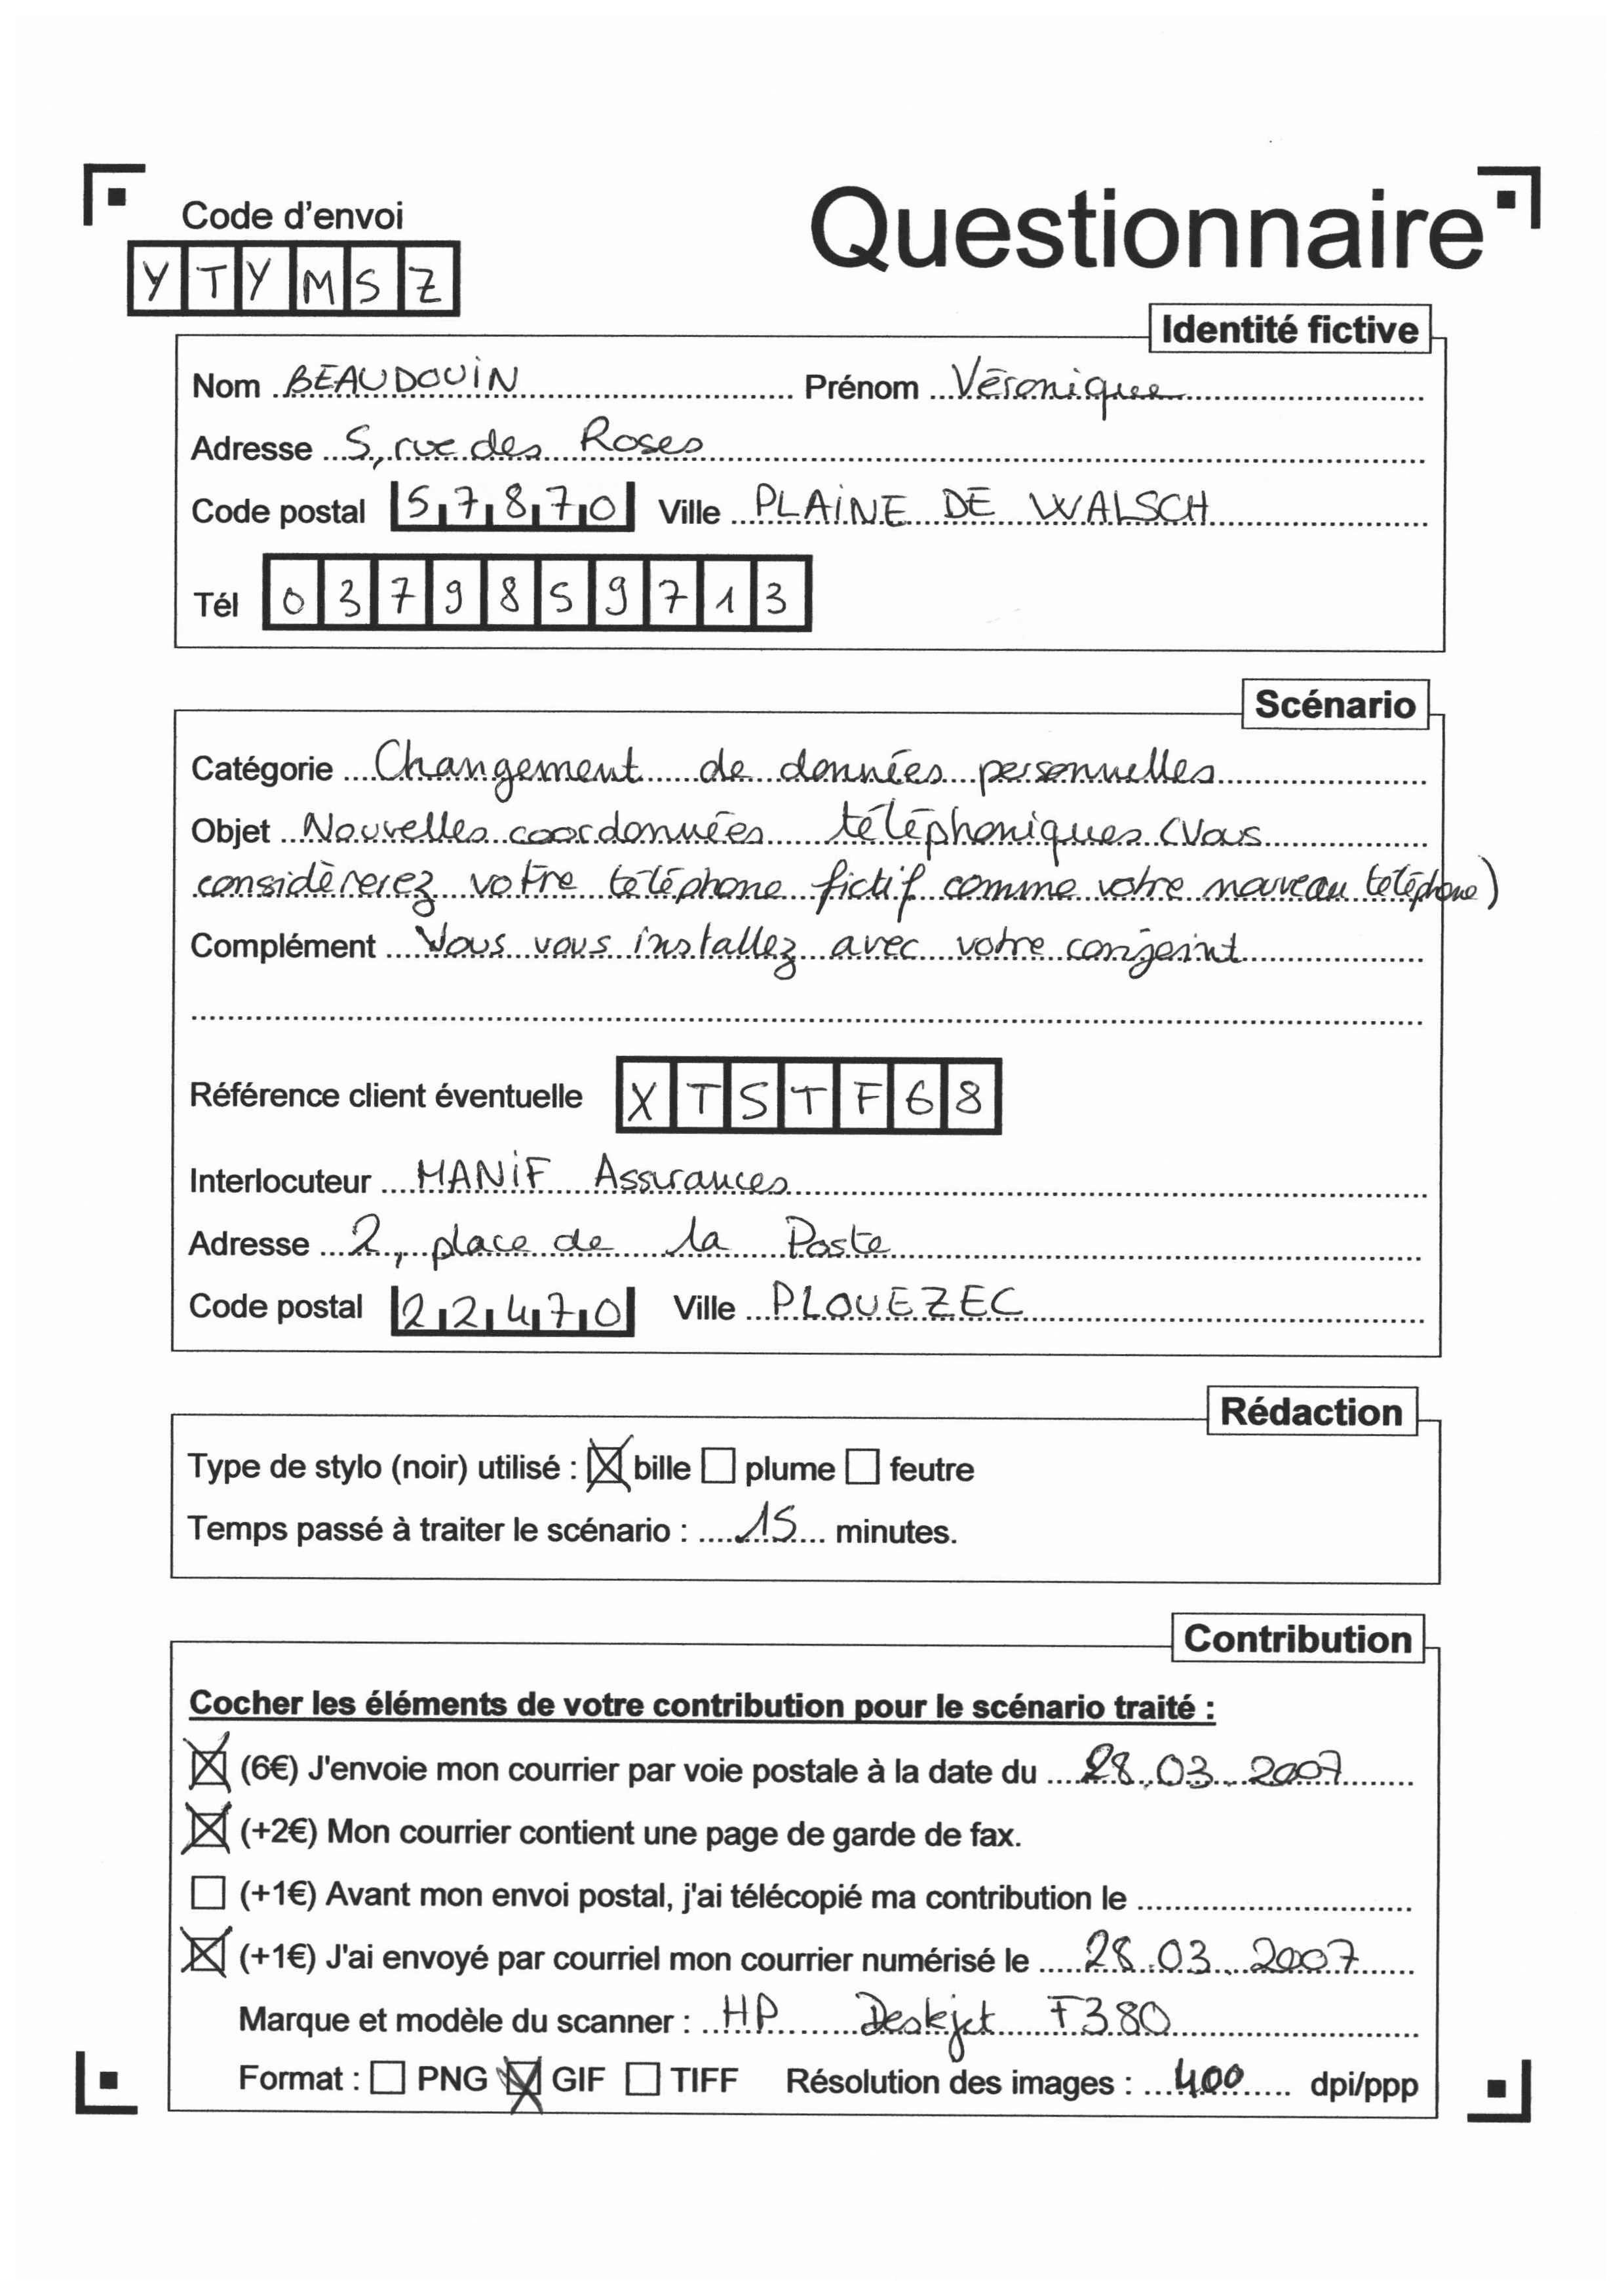 Code d'envoi
Questionnaire
YTYMSZ
Identité fictive
Nom BEAUDOUIN Prénom Véronique
Adresse 5, rue des Roses
Code postal 57870 Ville PLAINE DE WALSCH
Tél 0379859713
Scénario
Catégorie Changement de données personnelles
Objet Nouvelles coordonnées téléphoniques (Vous
considèrerez votre téléphone fictif comme votre nouveau téléphone)
Complément Vous vous installez avec votre conjoint
Référence client éventuelle XTSTF68
Interlocuteur MANIF Assurances
Adresse 2, place de la Poste
Code postal 22470 Ville PLOUEZEC
Rédaction
Type de stylo (noir) utilisé : ☒ bille ☐ plume ☐ feutre
Temps passé à traiter le scénario : 15 minutes.
Contribution
Cocher les éléments de votre contribution pour le scénario traité :
☒ (6€) J'envoie mon courrier par voie postale à la date du 28.03.2007
☒ (+2€) Mon courrier contient une page de garde de fax.
☐ (+1€) Avant mon envoi postal, j'ai télécopié ma contribution le
☒ (+1€) J'ai envoyé par courriel mon courrier numérisé le 28.03.2007
Marque et modèle du scanner : HP Deskjet F380
Format : ☐ PNG ☒ GIF ☐ TIFF Résolution des images : 400 dpi/ppp